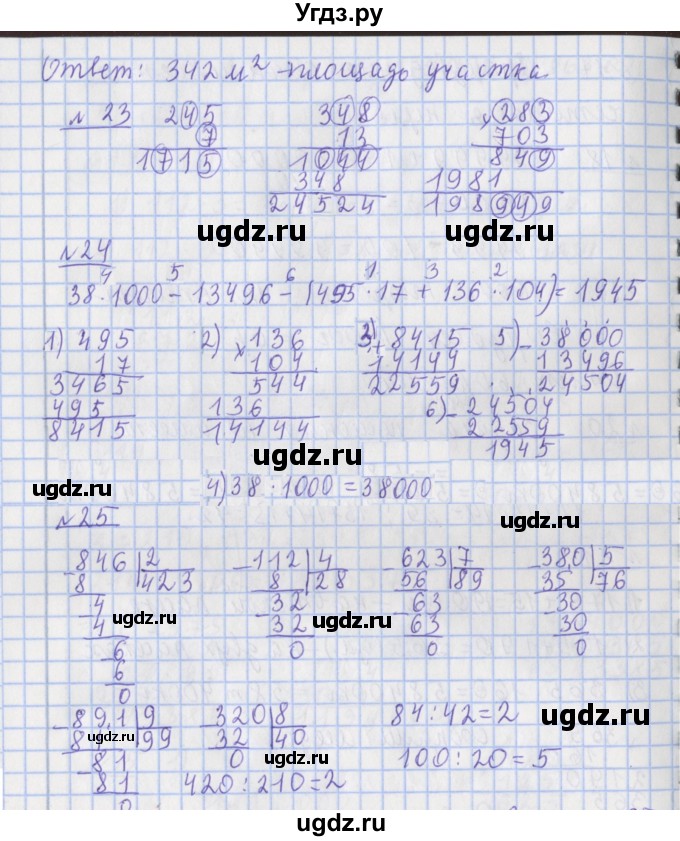 Угдз.ру
Ответ: 342 м² - площадь участка
№ 23 245 348 × 283
7 13 703
1715 1044 849
348 1981
24524 198949
ugdz.ru ugdz.ru
№24
4 5 6 1 3 2
38·1000 - 13496 - (495·17 + 136·104) = 1945
1) 495 2) × 136 3) + 8415 5) - 38000
17 104 14144 13496
3465 544 22559 24504
495 136 6) - 24504
8415 14144 22559
1945
ugdz.ru
ugdz.ru
4) 38·1000 = 38000
№25
- 846 | 2 - 112 | 4 - 623 | 7 - 380 | 5
8 | 423 8 | 28 56 | 89 35 | 76
- 4 - 32 - 63 - 30
4 32 63 30
6 0 0 0
- 6
0
ugdz.ru ugdz.ru
- 891 | 9 - 320 | 8 84 : 42 = 2
81 | 99 32 | 40
- 81 0 100 : 20 = 5
81 420 : 210 = 2
0
ugdz.ru ugdz.ru ugdz.ru
ugdz.ru